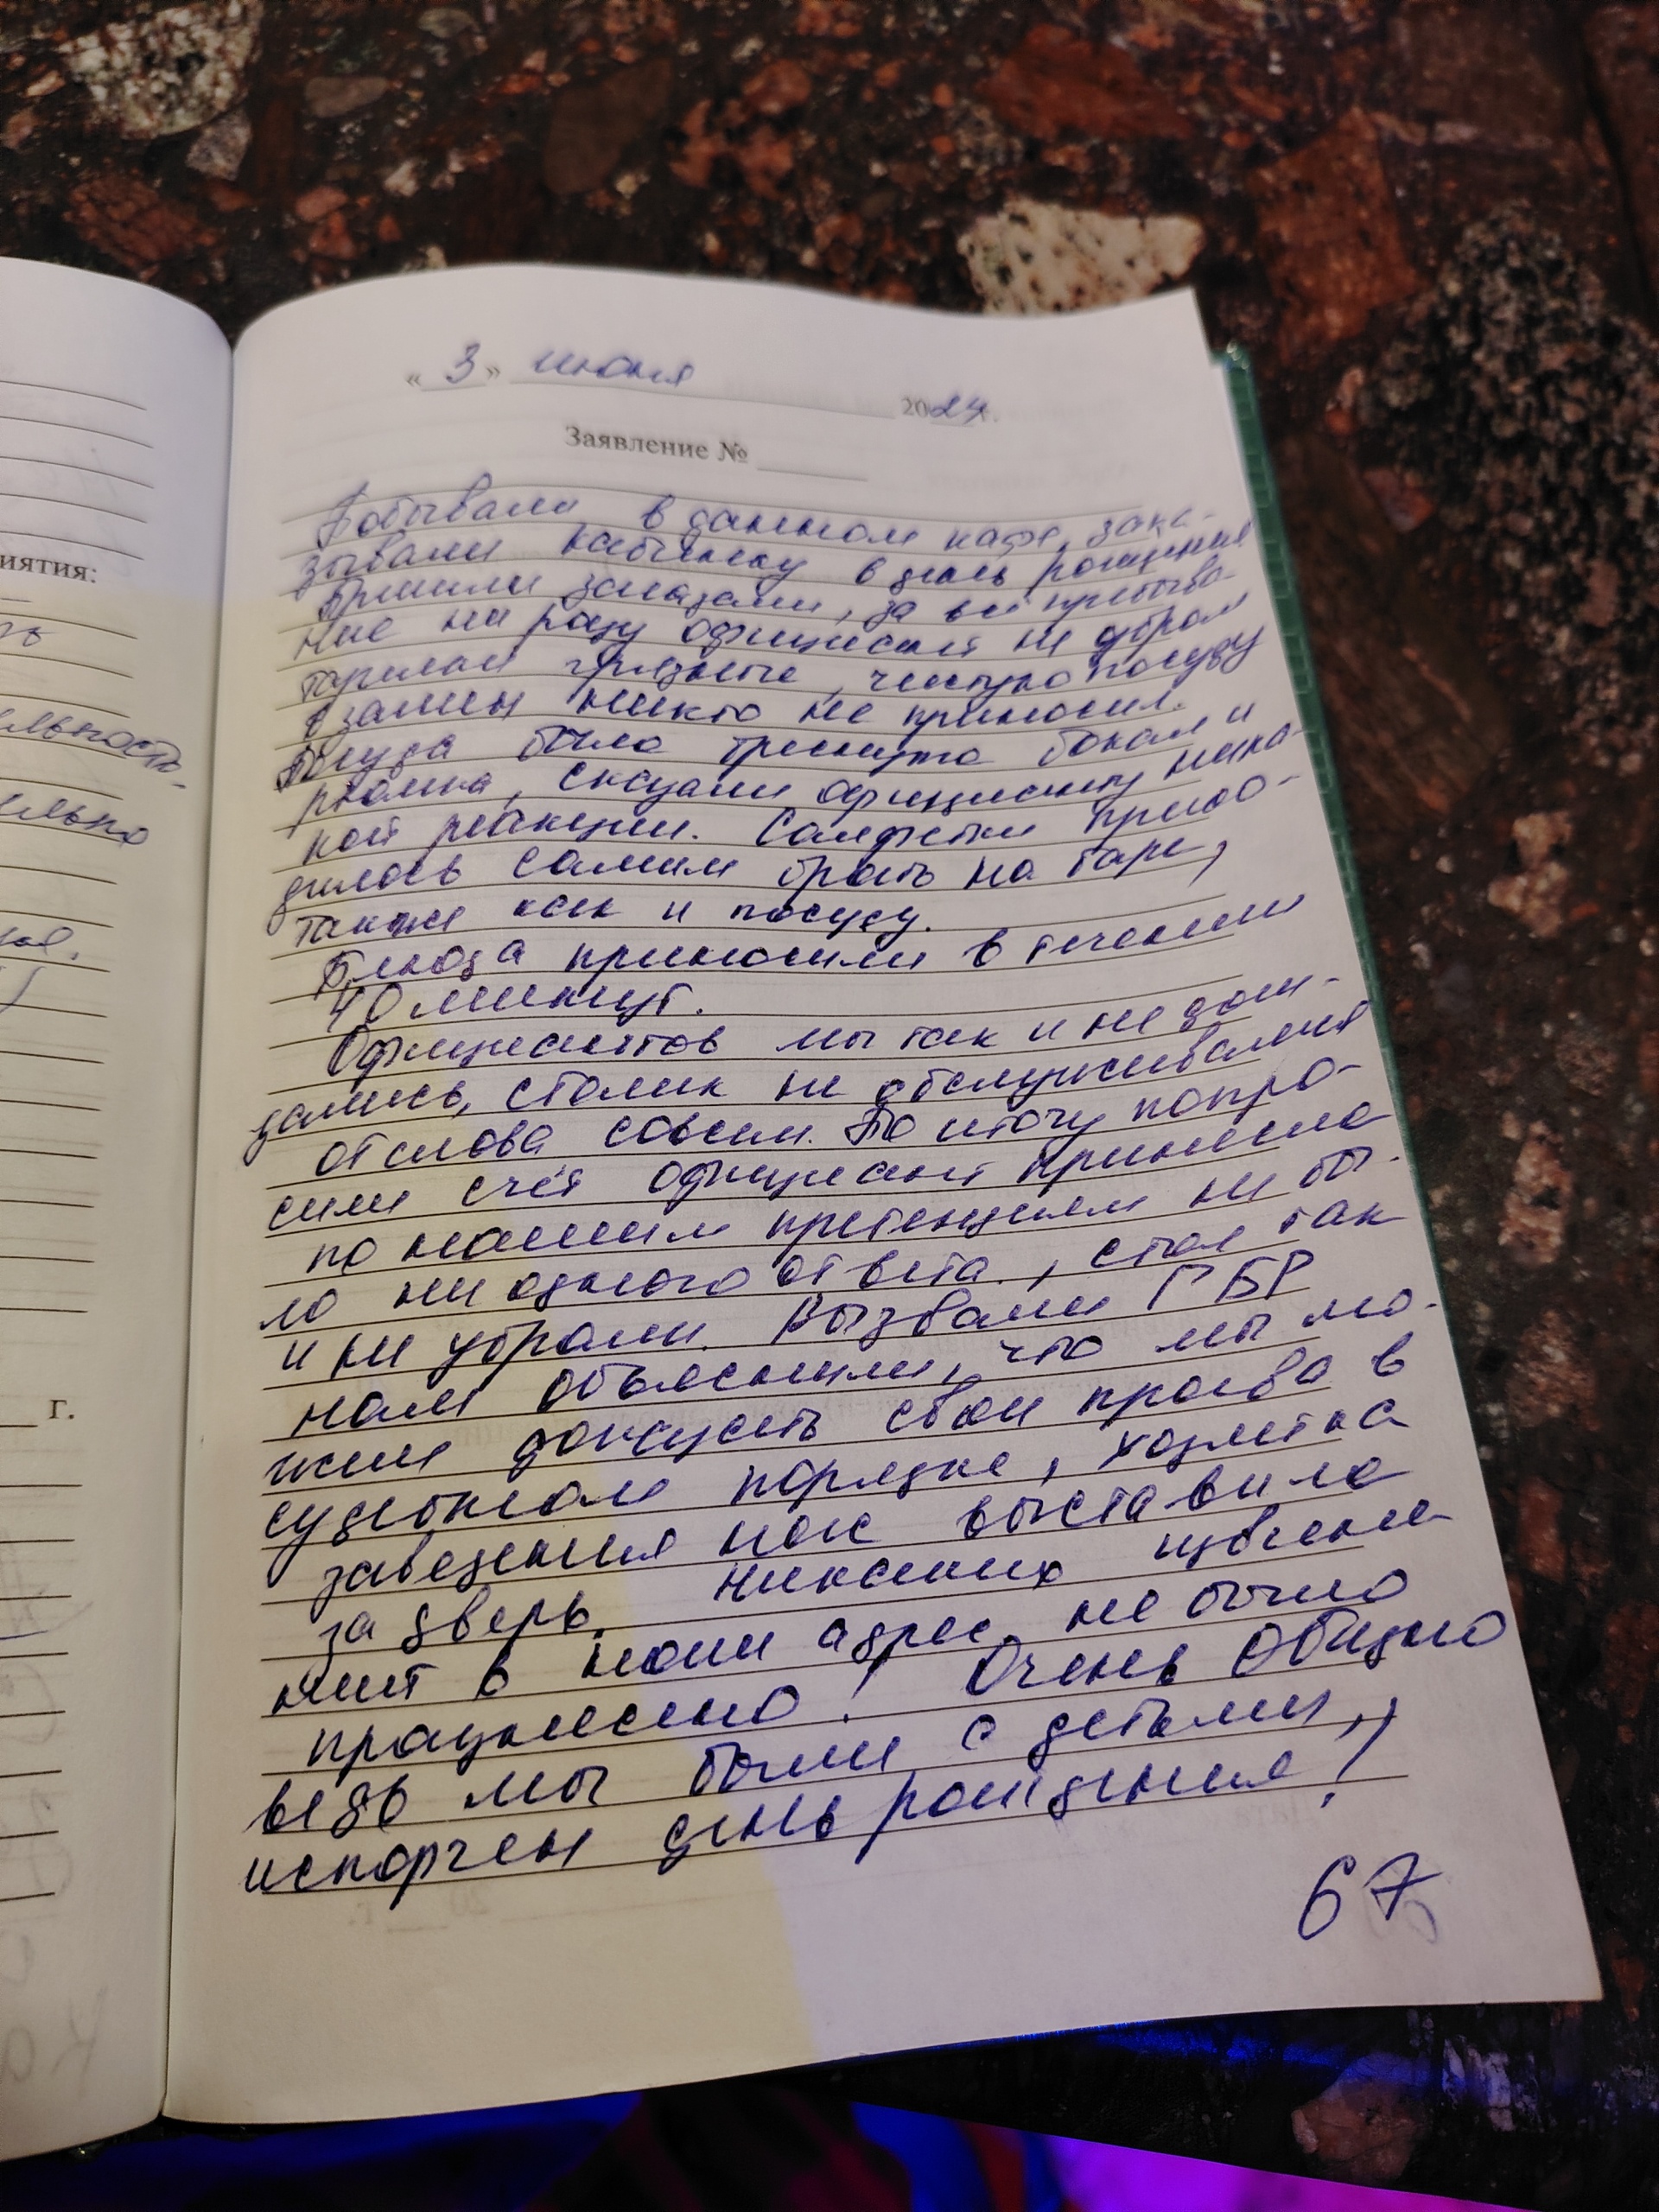 иятия:
ельность-
ельно
г.
« 3 » июня 2024г.
Заявление №
Побывали в данном кафе, зака-
зывали кабинку в день рождения
Пришли заказали, за всё пребыва-
ние ни разу официант не убрал
тарелки грязные, чистую посуду
взамен никто не приносил.
Посуда была треснута бокал и
рюмка, сказали официанту ника-
кой реакции. Салфетки прихо-
дилось самим брать на баре,
также как и посуду.
Блюда приносили в течении
40 минут.
Официантов мы так и не дож-
дались, столик не обслуживался
от слова совсем. По итогу попро-
сили счёт официант принесла
по нашим претензиям не бы-
ло ни одного ответа, стол так
и не убрали. Вызвали ГБР
нам объяснили, что мы мо-
жем доказать свои права в
судебном порядке, хозяйка
заведения нас выставила
за дверь. Никаких извене-
ний в наш адрес не было
произнесено! Очень обидно
ведь мы были с детьми,
испорчен день рождения!
67